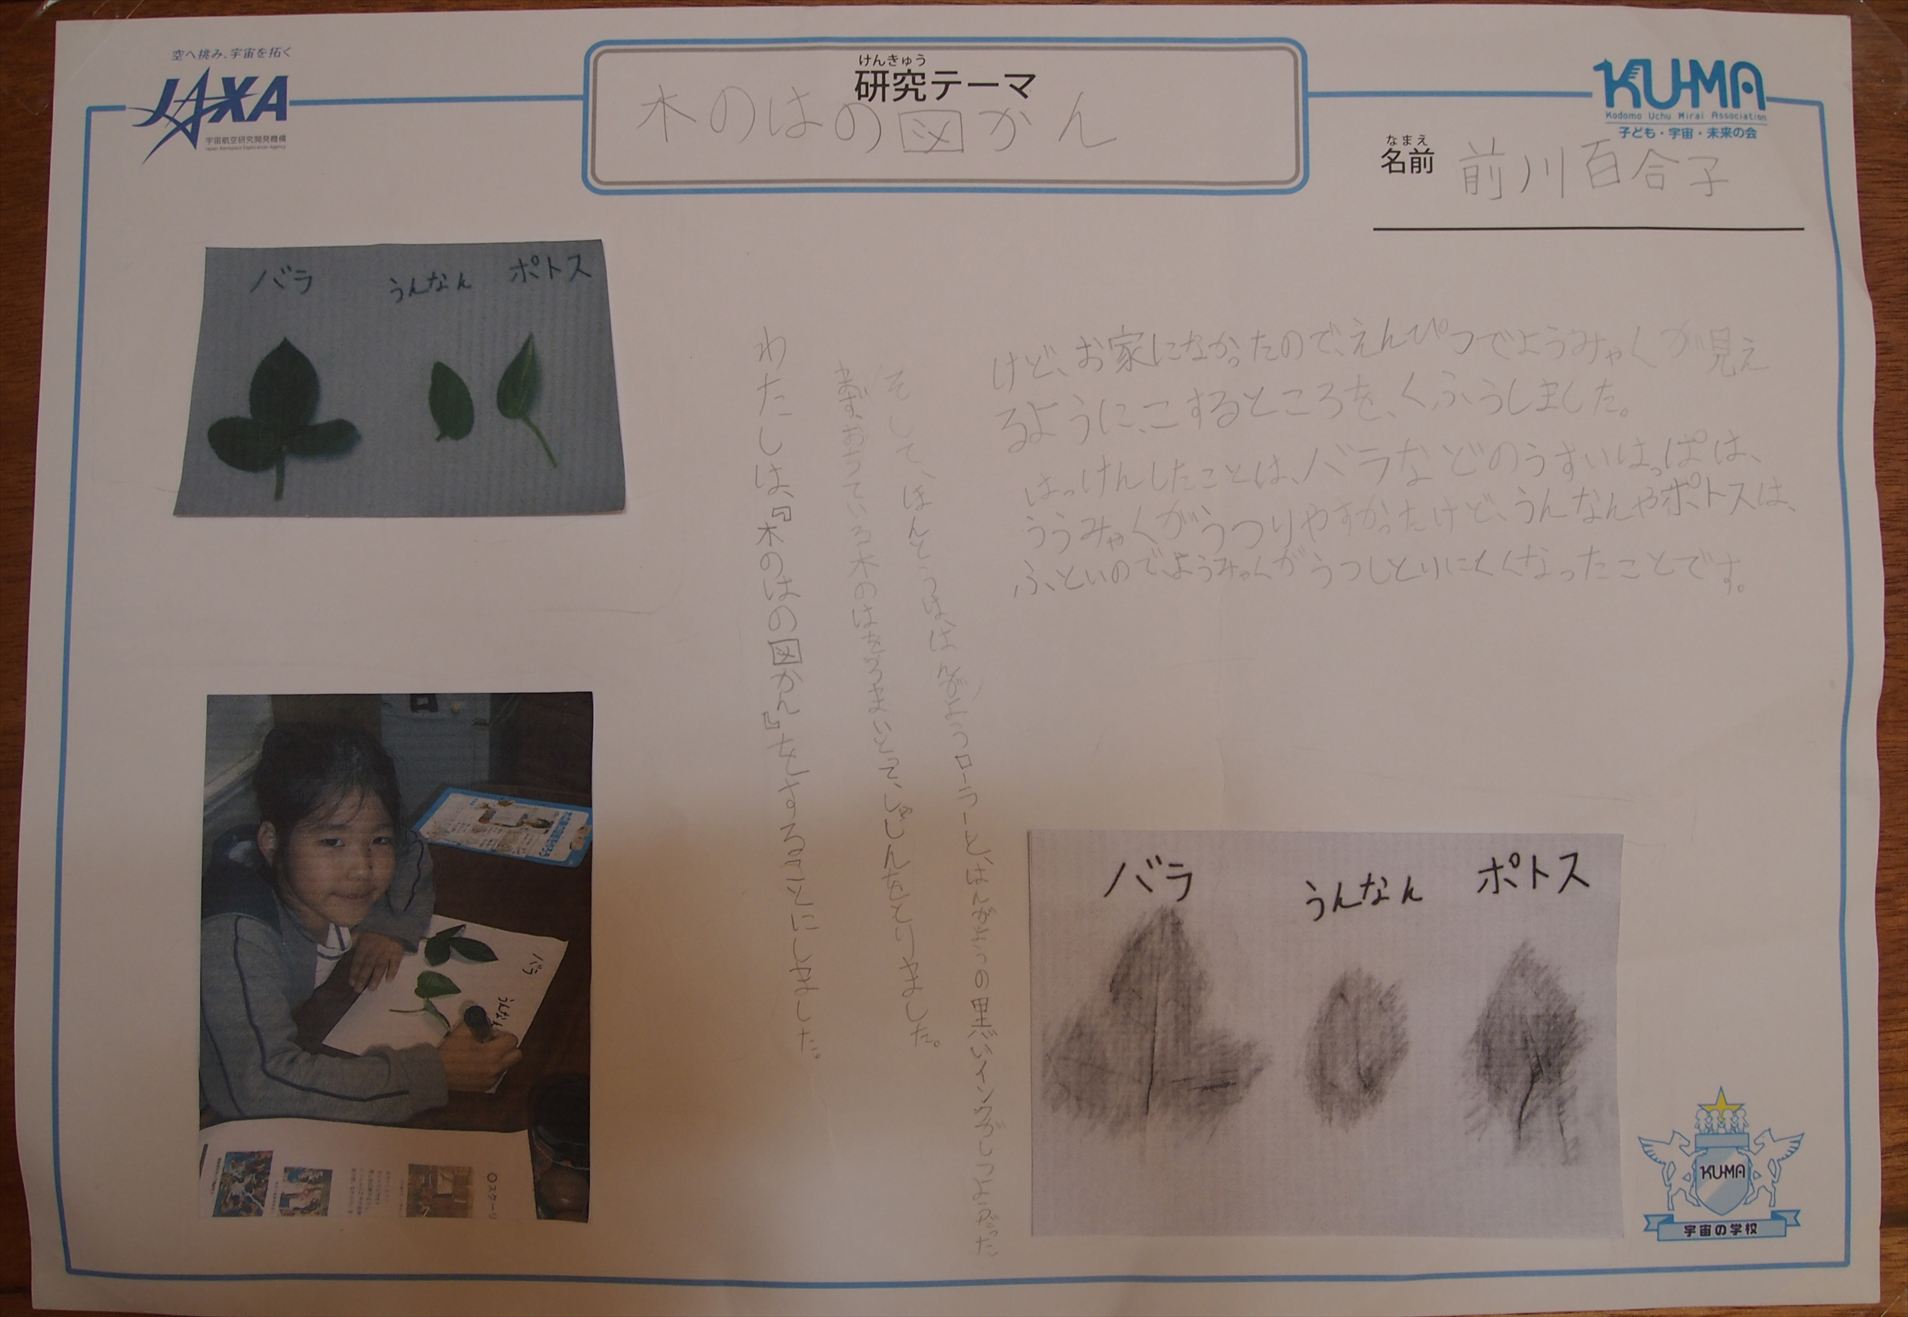 空へ挑み、宇宙を拓く
JAXA
宇宙航空研究開発機構
Japan Aerospace Exploration Agency
けんきゅう
研究テーマ
木のはの図かん
KU-MA
Kodomo Uchu Mirai Association
子ども・宇宙・未来の会
なまえ
名前 前川百合子
バラ うんなん ポトス
わたしは、『木のはの図かん』をすることにしました。
まずおちている木のはを3まいとって、しゃしんをとりました。
そして、ほんとうは、はんがようローラーと、はんがようの黒いインクがひつようだった
けど、お家になかったので、えんぴつでようみゃくが見え
るように、こするところを、くふうしました。
はっけんしたことは、バラなどのうすいはっぱは、
ううみゃくがうつりやすかったけど、うんなんやポトスは、
ふといのでようみゃくがうつしとりにくくなったことです。
バラ
うんなん
スケージ
バラ うんなん ポトス
KU-MA
宇宙の学校